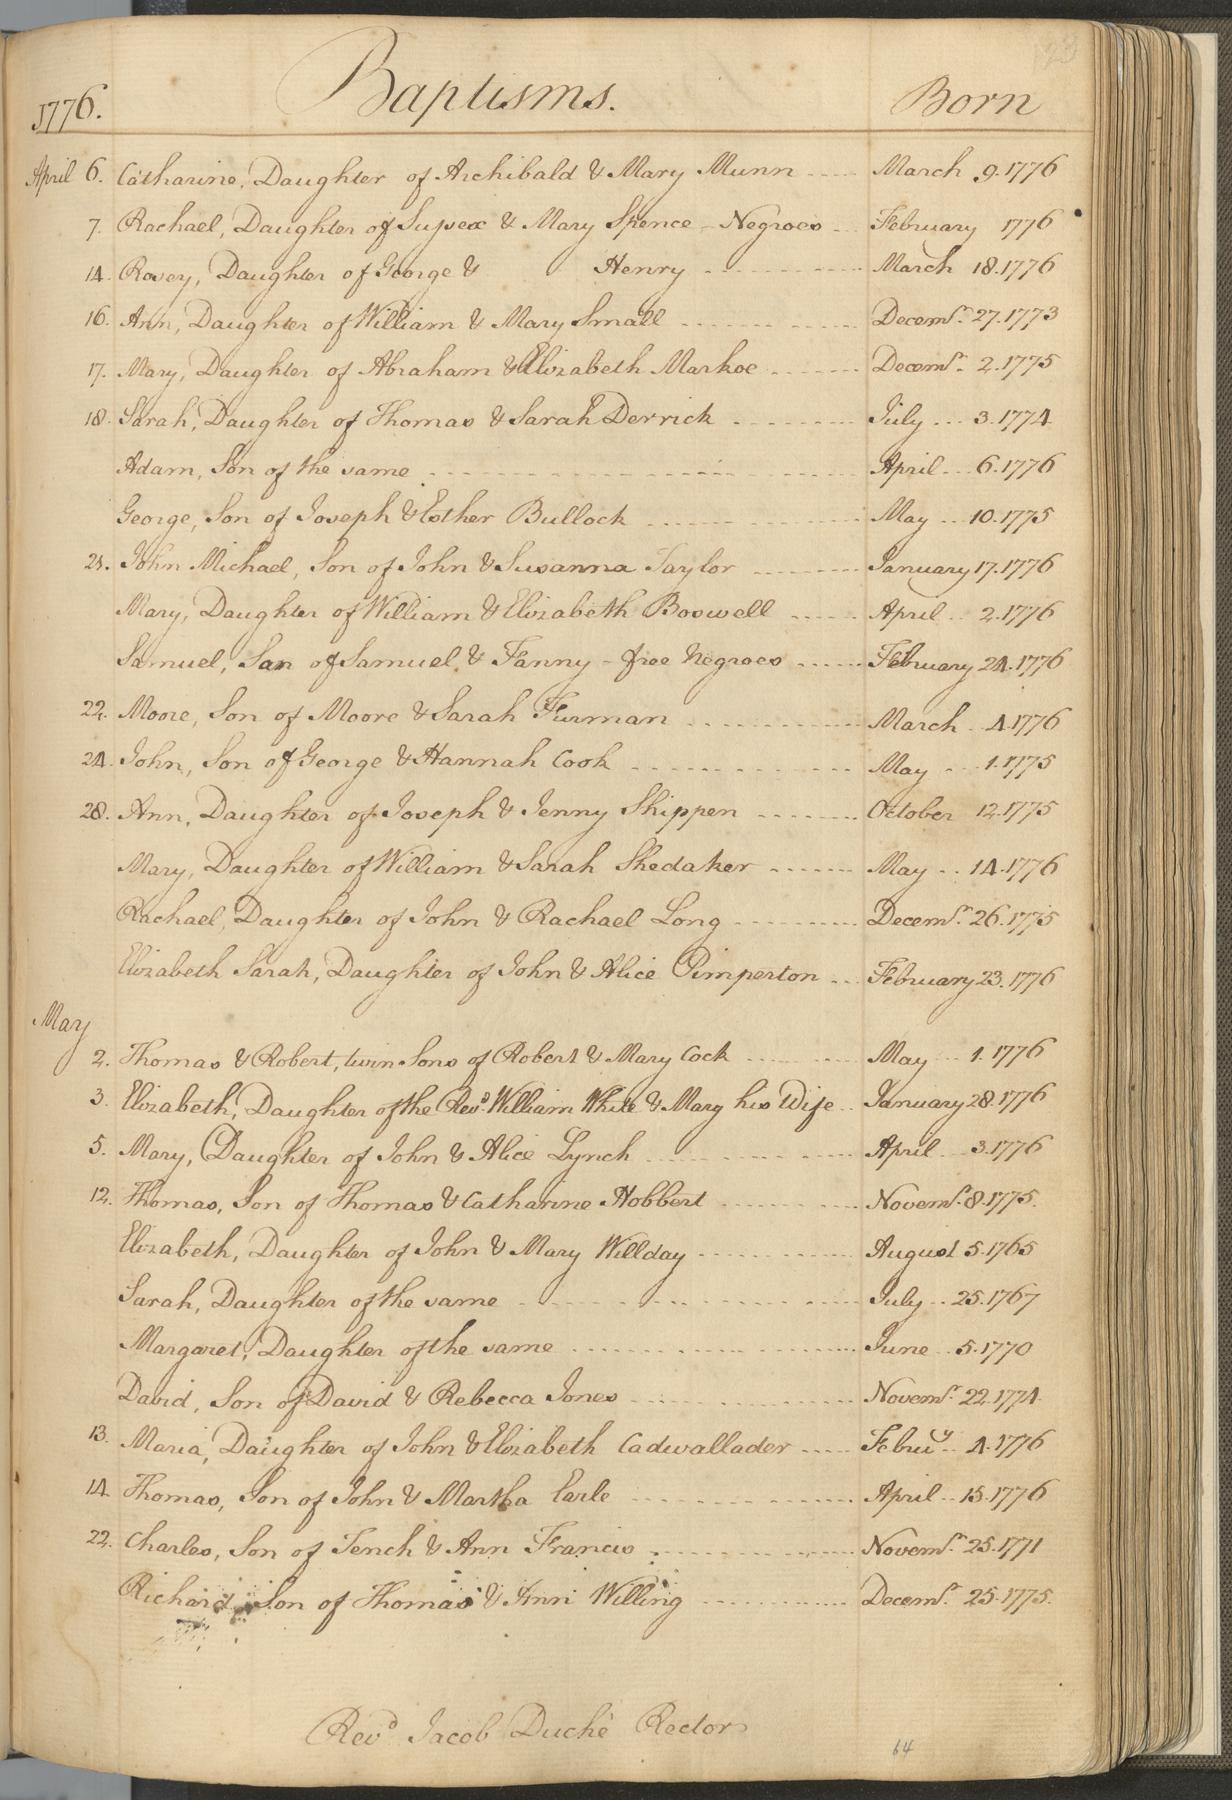 1776. Baptisms. Born
April 6. Catharine, Daughter of Archibald & Mary Munn .... March 9. 1776
7. Rachael, Daughter of Sussex & Mary Spence - Negroes ... February 1776
14. Rosey, Daughter of George & Henry .......... March 18. 1776
16. Ann, Daughter of William & Mary Small .......... Decemr. 27. 1773
17. Mary, Daughter of Abraham & Elizabeth Markoe ....... Decemr. 2. 1775
18. Sarah, Daughter of Thomas & Sarah Derrick ........ July ... 3. 1774
Adam, Son of the same .......... April ... 6. 1776
George, Son of Joseph & Esther Bullock .......... May ... 10. 1775
21. John Michael, Son of John & Susanna Taylor ........ January 17. 1776
Mary, Daughter of William & Elizabeth Boswell ..... April .. 2. 1776
Samuel, Son of Samuel & Fanny - free Negroes ...... February 24. 1776
22. Moore, Son of Moore & Sarah Furman .......... March .. 4. 1776
24. John, Son of George & Hannah Cook .......... May ... 1. 1775
28. Ann, Daughter of Joseph & Jenny Shippen ....... October 12. 1775
Mary, Daughter of William & Sarah Shedaker ....... May .. 14. 1776
Rachael, Daughter of John & Rachael Long ......... Decemr. 26. 1775
Elizabeth Sarah, Daughter of John & Alice Pimperton ... February 23. 1776
May
2. Thomas & Robert, twin Sons of Robert & Mary Cock ......... May ... 1. 1776
3. Elizabeth, Daughter of the Revd. William White & Mary his Wife .. January 28. 1776
5. Mary, Daughter of John & Alice Lynch .......... April ... 3. 1776
12. Thomas, Son of Thomas & Catharine Hobbert .......... Novemr. 8. 1775.
Elizabeth, Daughter of John & Mary Willday .......... August 5. 1765
Sarah, Daughter of the same .......... July .. 25. 1767
Margaret, Daughter of the same .......... June .. 5. 1770
David, Son of David & Rebecca Jones .......... Novemr. 22. 1774.
13. Maria, Daughter of John & Elizabeth Cadwallader ..... Februy .. 4. 1776
14. Thomas, Son of John & Martha Earle .......... April .. 15. 1776
22. Charles, Son of Tench & Ann Francis .......... Novemr. 25. 1771
Richard, Son of Thomas & Ann Willing .......... Decemr. 25. 1775.
Revd Jacob Duché Rector
64